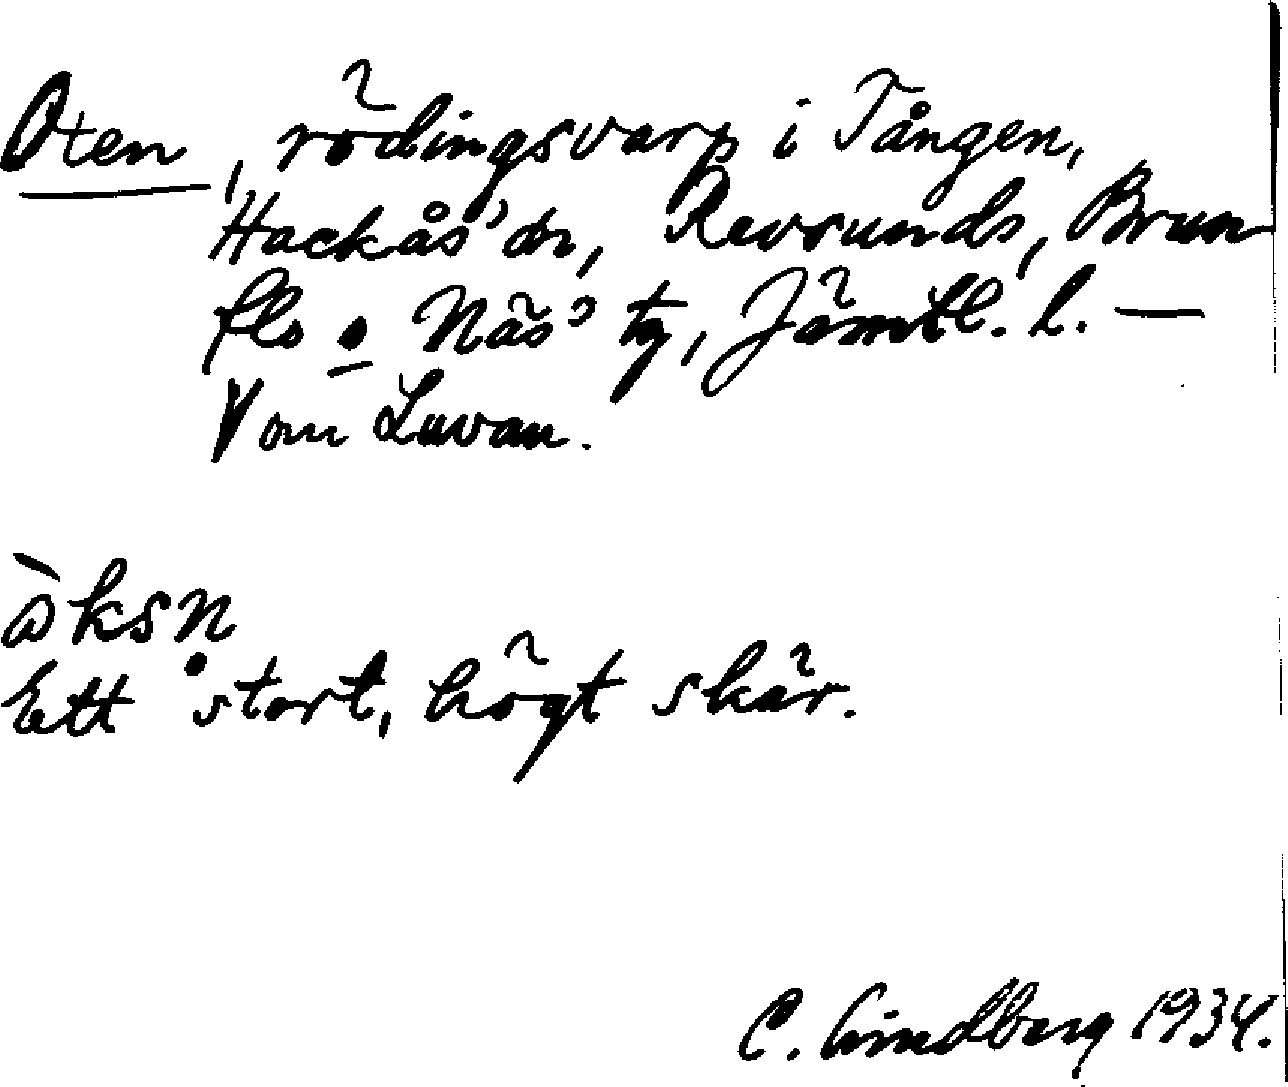 Oxen, rödingsvarp i Tången,
Hackås' sn, Revsunds, Brun
flo o Näs' tg, Jämtl. l. —
V om Luvan.
ò̀ksn
Ett stort, högt skär.
C. Lindberg 1934.